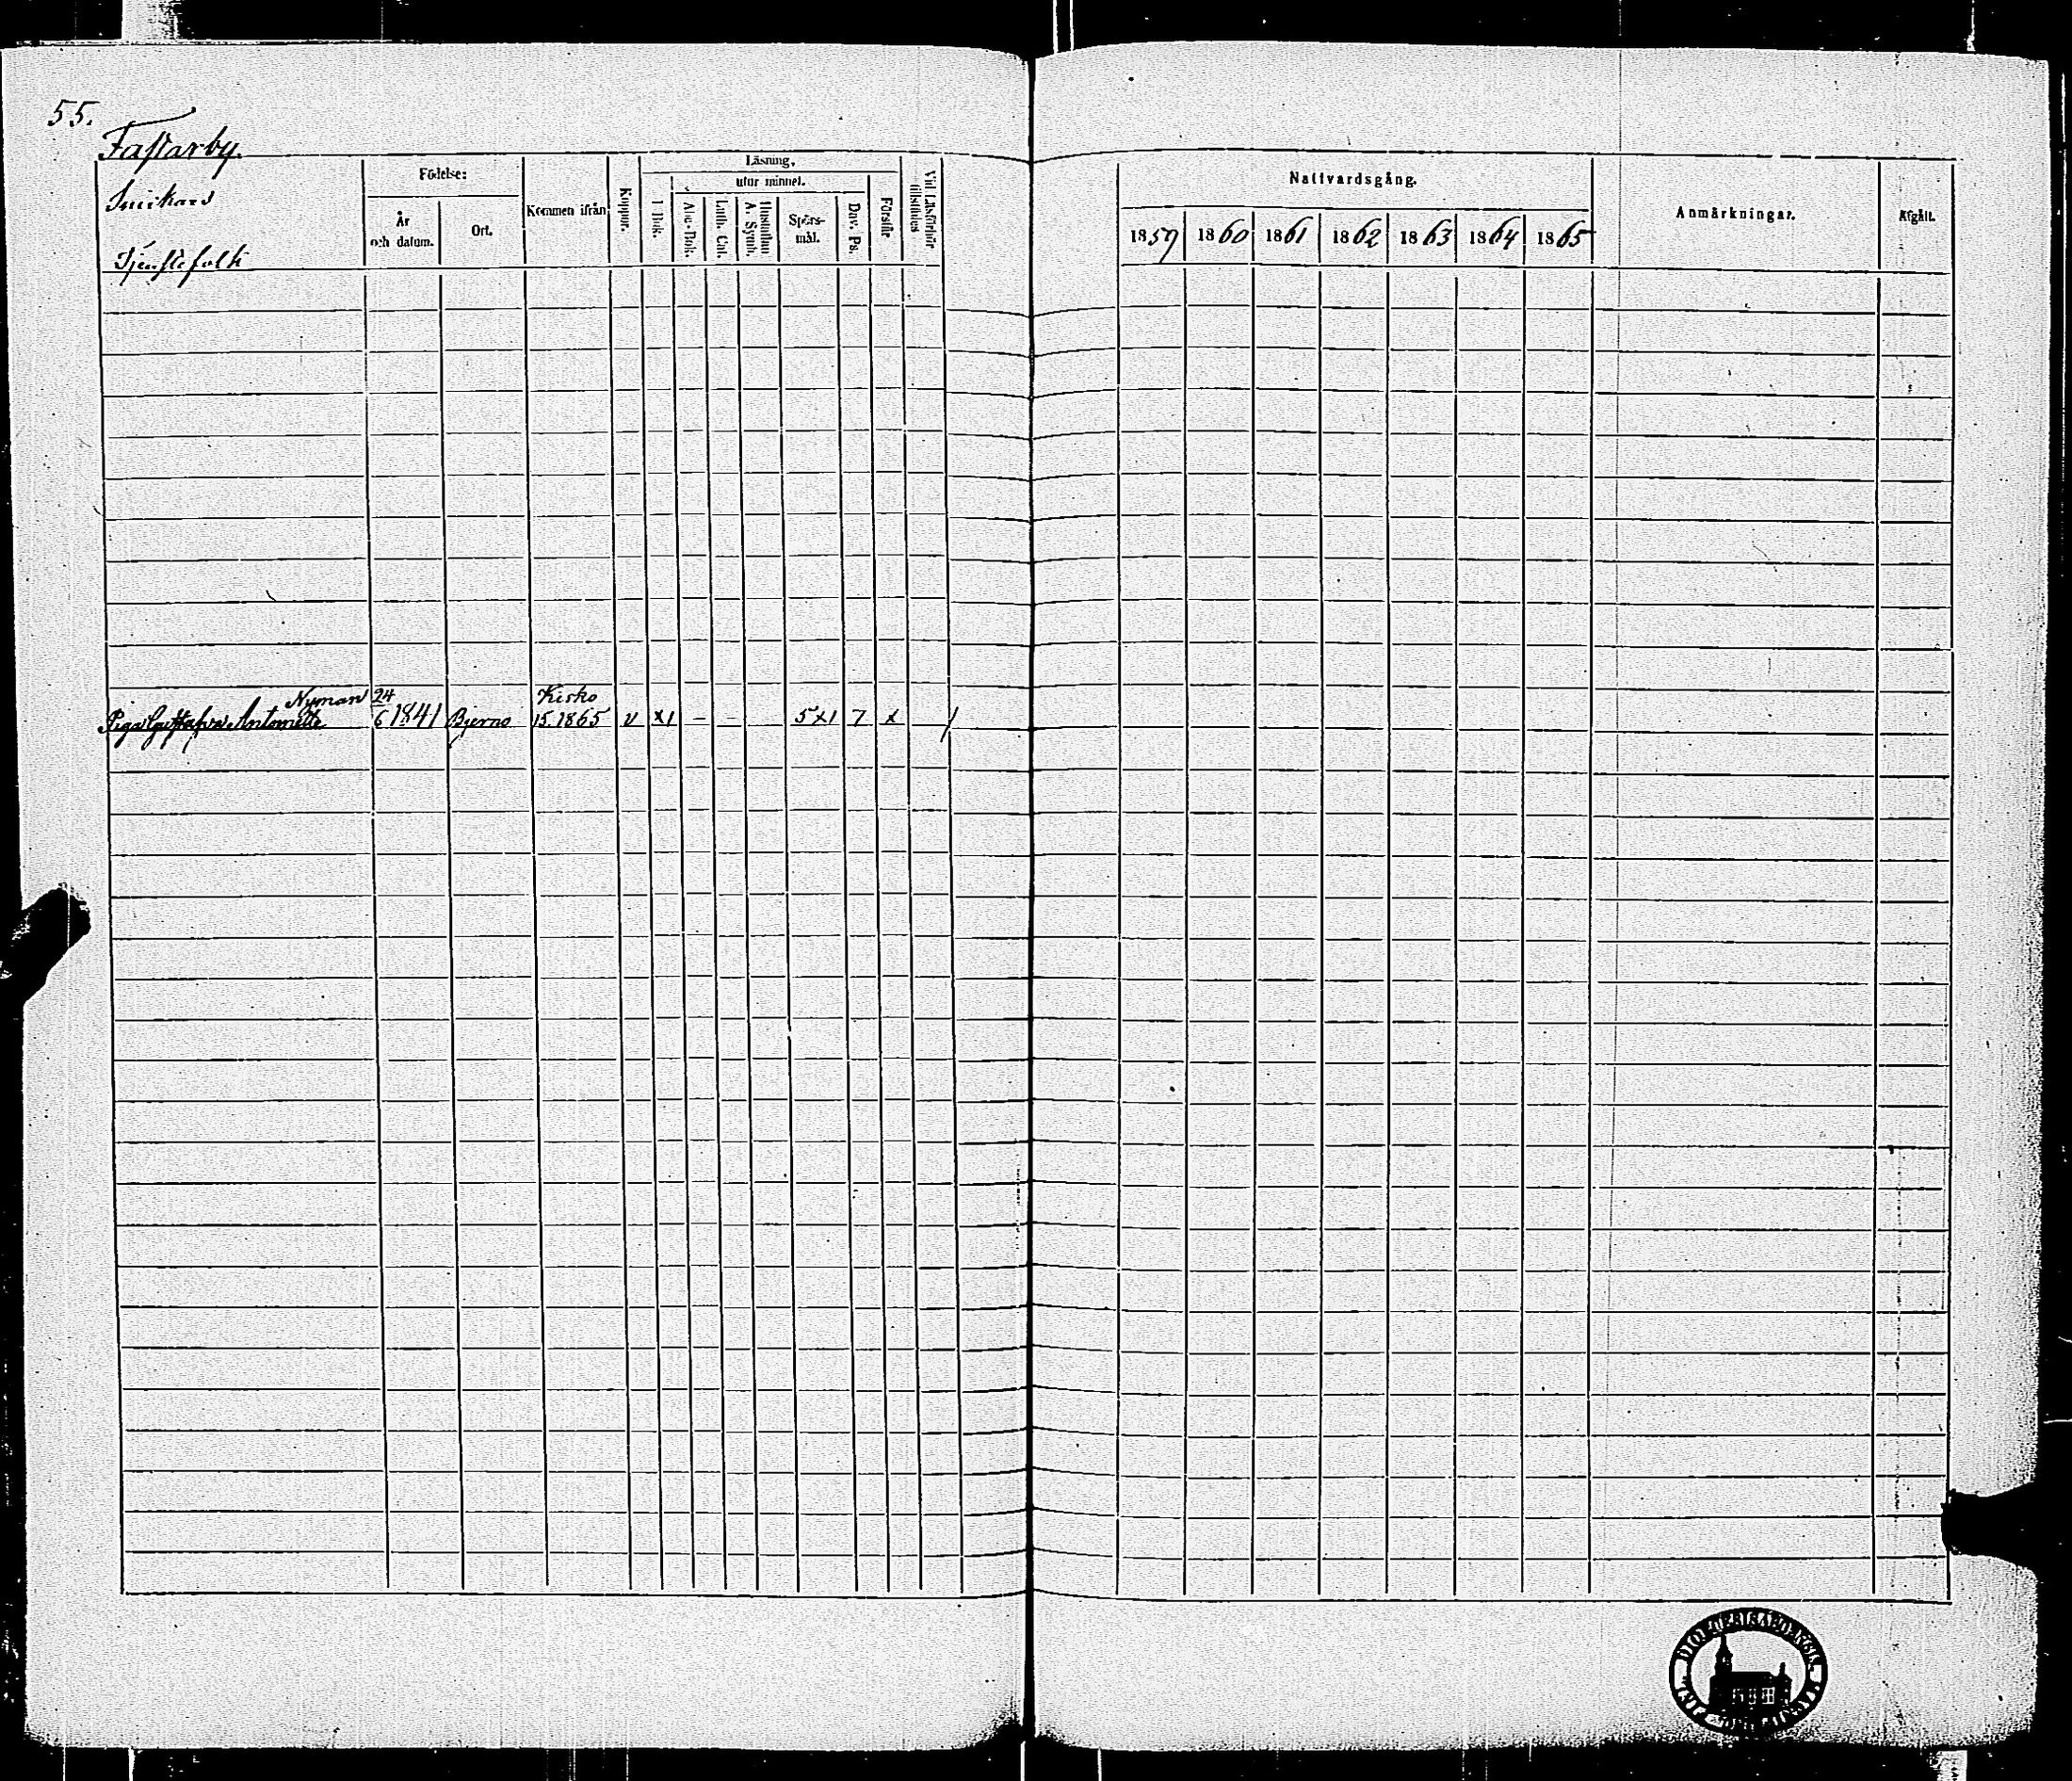 55.
Fastarby.
Snickars
Tjenstefolk
Födelse:
År
och datum.
Ort.
Kommen ifrån
Koppor.
Läsning,
utur minnet.
I Bok.
Abc-Bok.
Luth. Cat.
Hustaflan
A. Symb.
Spörs-
mål.
Dav. Ps.
Förstår
Vid Läsförhör
tillstädes
Nattvardsgång.
1859 1860 1861 1862 1863 1864 1865
Anmärkningar.
Afgått.
Nyman 24 Kisko
Piga Gustafva Antonette 6 1841 Bjerno 15.1865 v x1 – – 5x1 7 x /